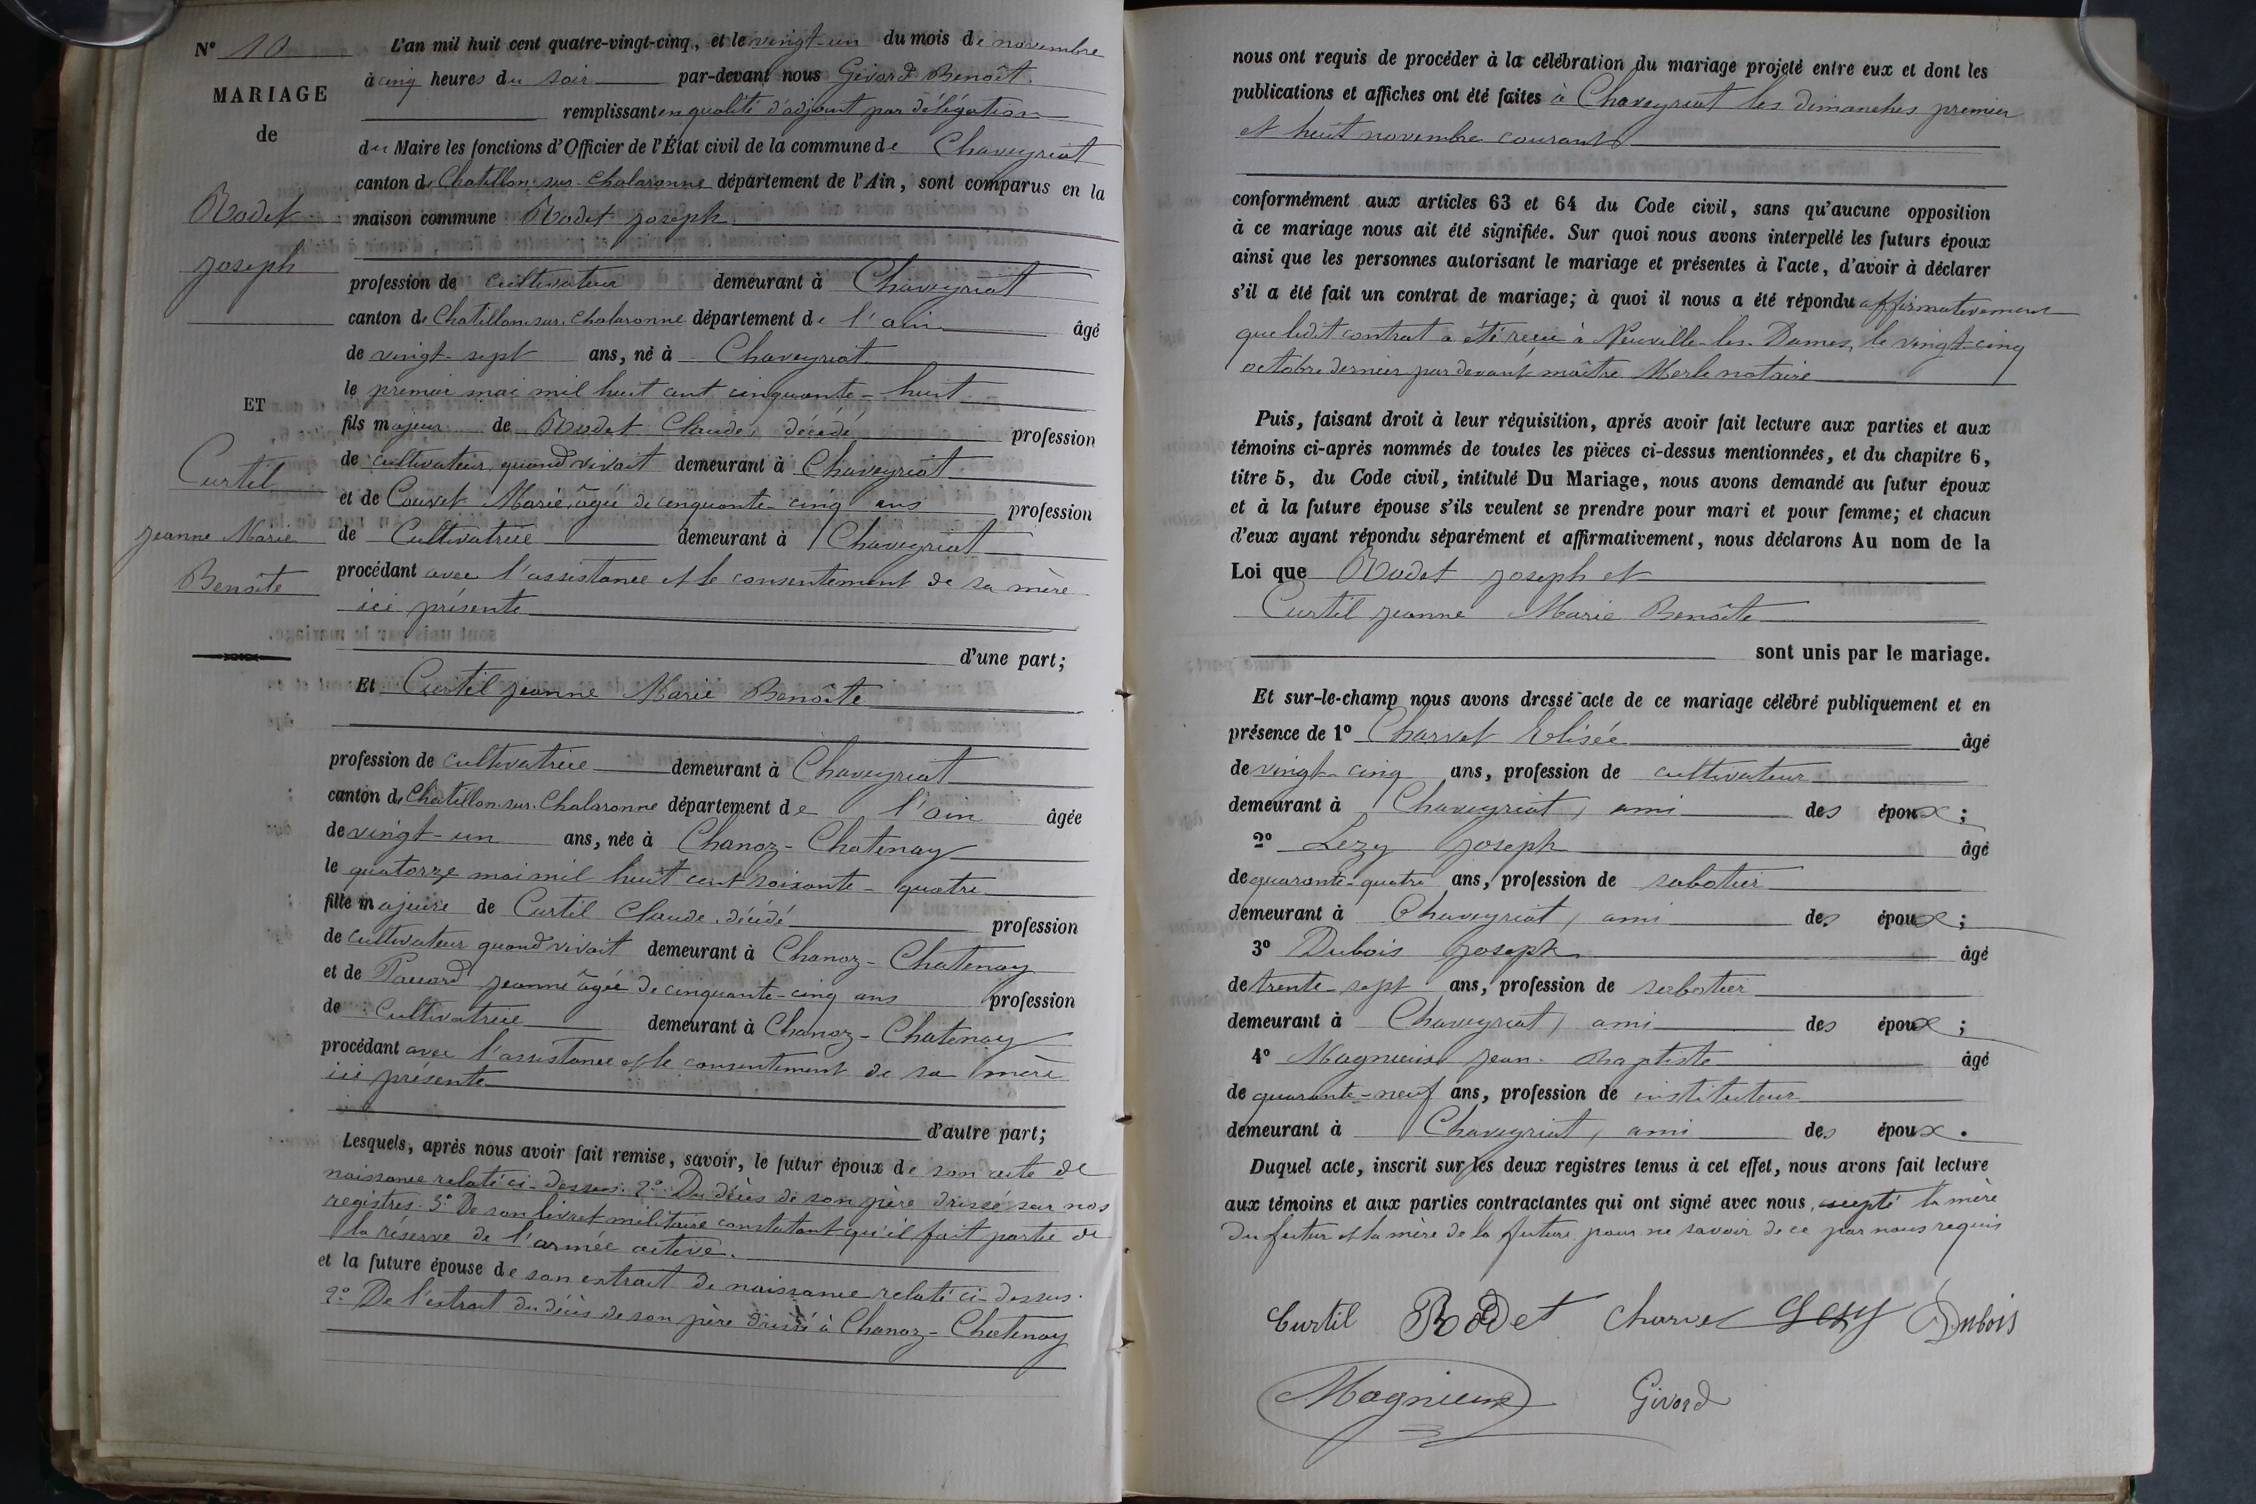 N° 10
MARIAGE
de
Rodet
Joseph
ET
Curtil
Jeanne Marie
Benoîte
L'an mil huit cent quatre-vingt-cinq, et le vingt-un du mois de novembre
à cinq heures du soir par-devant nous Givord Benoît
remplissant en qualité d'adjoint par délégation
du Maire les fonctions d'Officier de l'État civil de la commune de Chaveyriat
canton de Chatillon-sur-Chalaronne département de l'Ain, sont comparus en la
maison commune Rodet Joseph
profession de cultivateur demeurant à Chaveyriat
canton de Chatillon-sur-Chalaronne département de l'ain âgé
de vingt-sept ans, né à Chaveyriat
le premier mai mil huit cent cinquante-huit
fils majeur de Rodet Claude, décédé profession
de cultivateur quand vivait demeurant à Chaveyriat
et de Couvet Marie, âgée de cinquante-cinq ans profession
de Cultivatrice demeurant à Chaveyriat
procédant avec l'assistance et le consentement de sa mère
ici présente
d'une part;
Et Curtil Jeanne Marie Benoîte
profession de cultivatrice demeurant à Chaveyriat
canton de Chatillon-sur-Chalaronne département de l'ain âgée
de vingt-un ans, née à Chanoz-Chatenay
le quatorze mai mil huit cent soixante-quatre
fille majeure de Curtil Claude, décédé profession
de cultivateur quand vivait demeurant à Chanoz-Chatenay
et de Jeanne âgée de cinquante-cinq ans profession
de Cultivatrice demeurant à Chanoz-Chatenay
procédant avec l'assistance et le consentement de sa mère
ici présente
d'autre part;
Lesquels, après nous avoir fait remise, savoir, le futur époux de son acte de
naissance relaté ci-dessus. 2° Du décès de son père dressé sur nos
registres. 3° De son livret militaire constatant qu'il fait partie de
la réserve de l'armée active.
et la future épouse de son extrait de naissance relaté ci-dessus.
2° De l'extrait du décès de son père dressé à Chanoz-Chatenay
nous ont requis de procéder à la célébration du mariage projeté entre eux et dont les
publications et affiches ont été faites à Chaveyriat les dimanches premier
et huit novembre courant
conformément aux articles 63 et 64 du Code civil, sans qu'aucune opposition
à ce mariage nous ait été signifiée. Sur quoi nous avons interpellé les futurs époux
ainsi que les personnes autorisant le mariage et présentes à l'acte, d'avoir à déclarer
s'il a été fait un contrat de mariage; à quoi il nous a été répondu affirmativement
que ledit contrat a été reçu à Neuville-les-Dames, le vingt-cinq
octobre dernier par devant maître Merle notaire
Puis, faisant droit à leur réquisition, après avoir fait lecture aux parties et aux
témoins ci-après nommés de toutes les pièces ci-dessus mentionnées, et du chapitre 6,
titre 5, du Code civil, intitulé Du Mariage, nous avons demandé au futur époux
et à la future épouse s'ils veulent se prendre pour mari et pour femme; et chacun
d'eux ayant répondu séparément et affirmativement, nous déclarons Au nom de la
Loi que Rodet Joseph et
Curtil Jeanne Marie Benoîte
sont unis par le mariage.
Et sur-le-champ nous avons dressé acte de ce mariage célébré publiquement et en
présence de 1° Charvet Elisée âgé
de vingt-cinq ans, profession de cultivateur
demeurant à Chaveyriat, ami des époux;
2° Lezy Joseph âgé
de quarante-quatre ans, profession de sabotier
demeurant à Chaveyriat, ami des époux;
3° Dubois Joseph âgé
de trente-sept ans, profession de sabotier
demeurant à Chaveyriat, ami des époux;
4° Magnieux Jean-Baptiste âgé
de quarante-neuf ans, profession de instituteur
demeurant à Chaveyriat, ami des époux.
Duquel acte, inscrit sur les deux registres tenus à cet effet, nous avons fait lecture
aux témoins et aux parties contractantes qui ont signé avec nous, excepté la mère
du futur et la mère de la future pour ne savoir de ce par nous requis
Curtil Rodet Charvet Lezy Dubois
Magnieux Givord